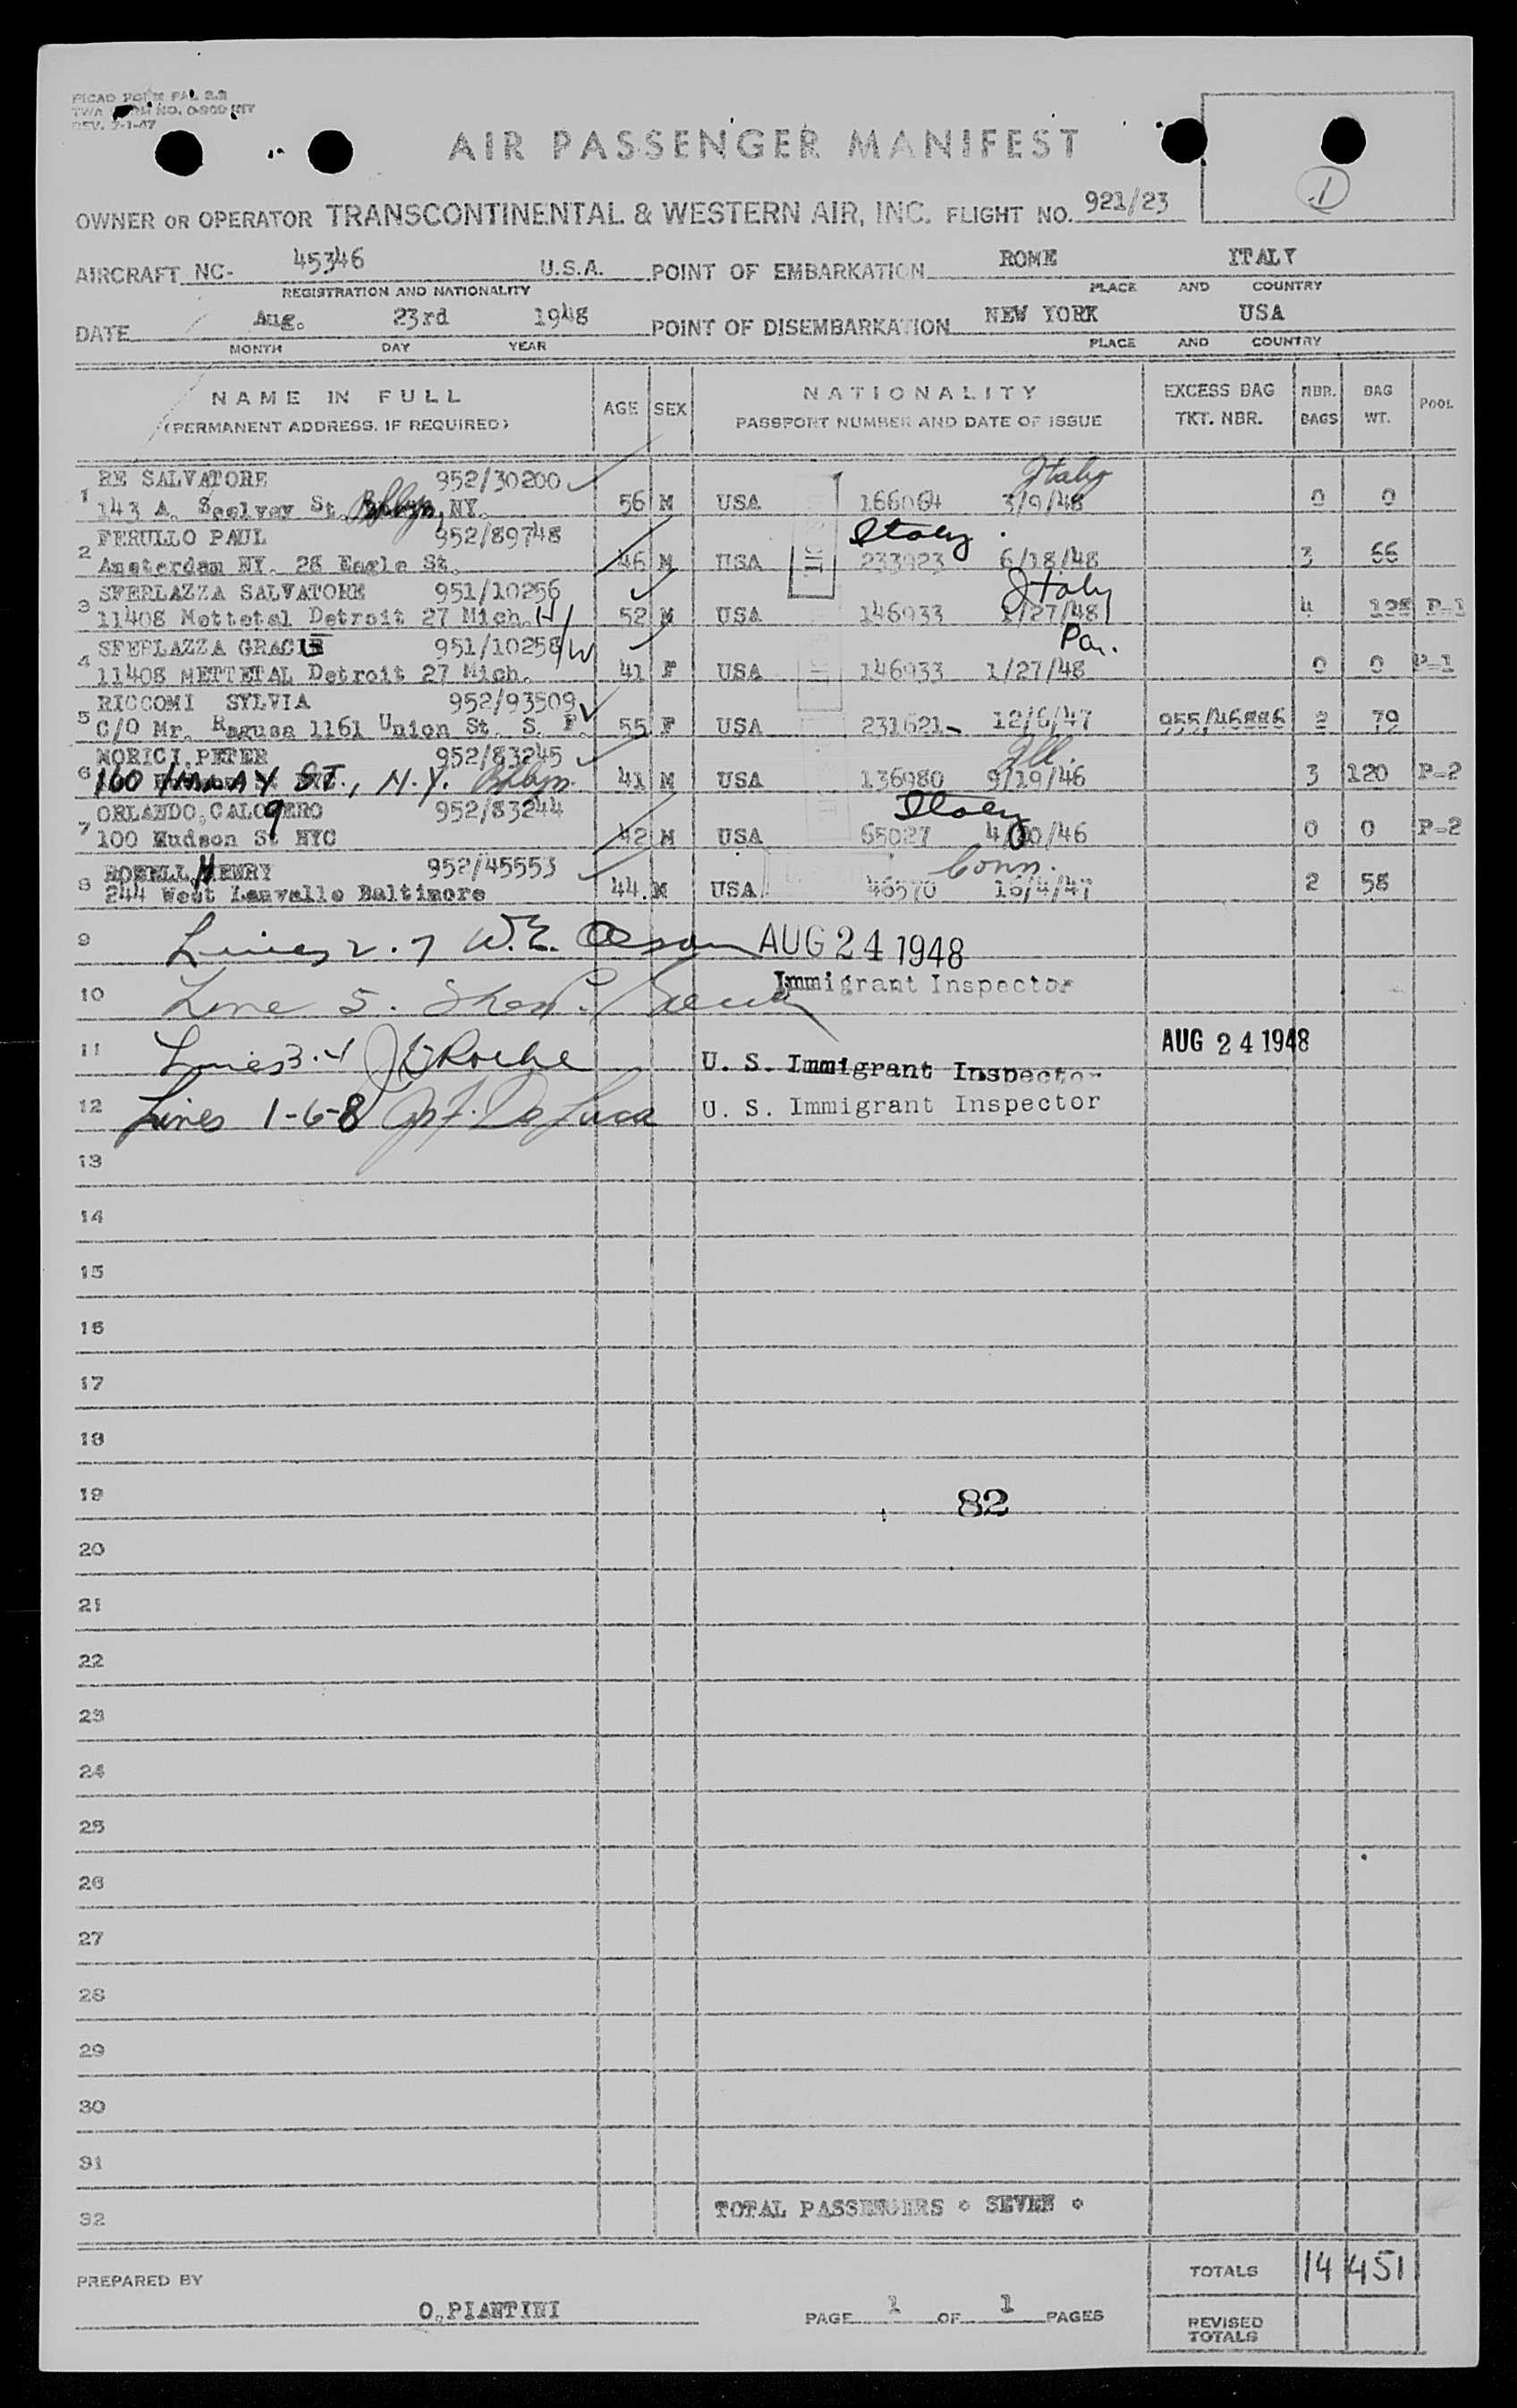 PICAO FORM PAL 2.2
TWA FORM NO. O-900 INT
REV. 7-1-47
AIR PASSENGER MANIFEST
1
OWNER OR OPERATOR TRANSCONTINENTAL & WESTERN AIR, INC. FLIGHT NO. 921/23
AIRCRAFT NC- 45346 U.S.A. POINT OF EMBARKATION ROME ITALY
REGISTRATION AND NATIONALITY PLACE AND COUNTRY
DATE Aug. 23rd 1948 POINT OF DISEMBARKATION NEW YORK USA
MONTH DAY YEAR PLACE AND COUNTRY
NAME IN FULL AGE SEX NATIONALITY EXCESS BAG NBR. BAG POOL
(PERMANENT ADDRESS, IF REQUIRED) PASSPORT NUMBER AND DATE OF ISSUE TKT. NBR. BAGS WT.
RE SALVATORE 952/30200 Italy
1 143 A. Seelvey St NY. 56 M USA 166064 3/9/48 0 0
FERULLO PAUL 952/89748 Italy
2 Amsterdam NY. 28 Eagle St. 46 M USA 233923 6/18/48 3 66
SFERLAZZA SALVATORE 951/10256 Italy
3 11408 Mettetal Detroit 27 Mich. H/ 52 M USA 146933 1/27/48 4 128 P-1
SFERLAZZA GRACIE 951/10258 /W Pa.
4 11408 METTETAL Detroit 27 Mich. 41 F USA 146933 1/27/48 0 0 P-1
RICCOMI SYLVIA 952/93509
5 C/O Mr. Ragusa 1161 Union St. S. F. 55 F USA 231621 12/6/47 955/46886 2 79
MORICI, PETER 952/83245 Ill.
6 160 ST., N.Y. Bklyn 41 M USA 136980 9/19/46 3 120 P-2
ORLANDO, CALOGERO 952/83244 Italy
7 100 Hudson St NYC 42 M USA 65027 4/30/46 0 0 P-2
HENRY 952/45553 Conn.
8 244 West Lanvalle Baltimore 44 M USA 46570 16/4/47 2 58
9 Lines 2.7 W.E. Olson AUG 24 1948
Immigrant Inspector
10 Line 5.
11 Lines 3.4 J Roche U. S. Immigrant Inspector AUG 24 1948
12 Lines 1-6-8 Jos F. De Luca U. S. Immigrant Inspector
13
14
15
16
17
18
19 82
20
21
22
23
24
25
26
27
28
29
30
31
32 TOTAL PASSENGERS * SEVEN *
TOTALS 14 451
PREPARED BY O. PIANTINI PAGE 1 OF 1 PAGES
REVISED
TOTALS